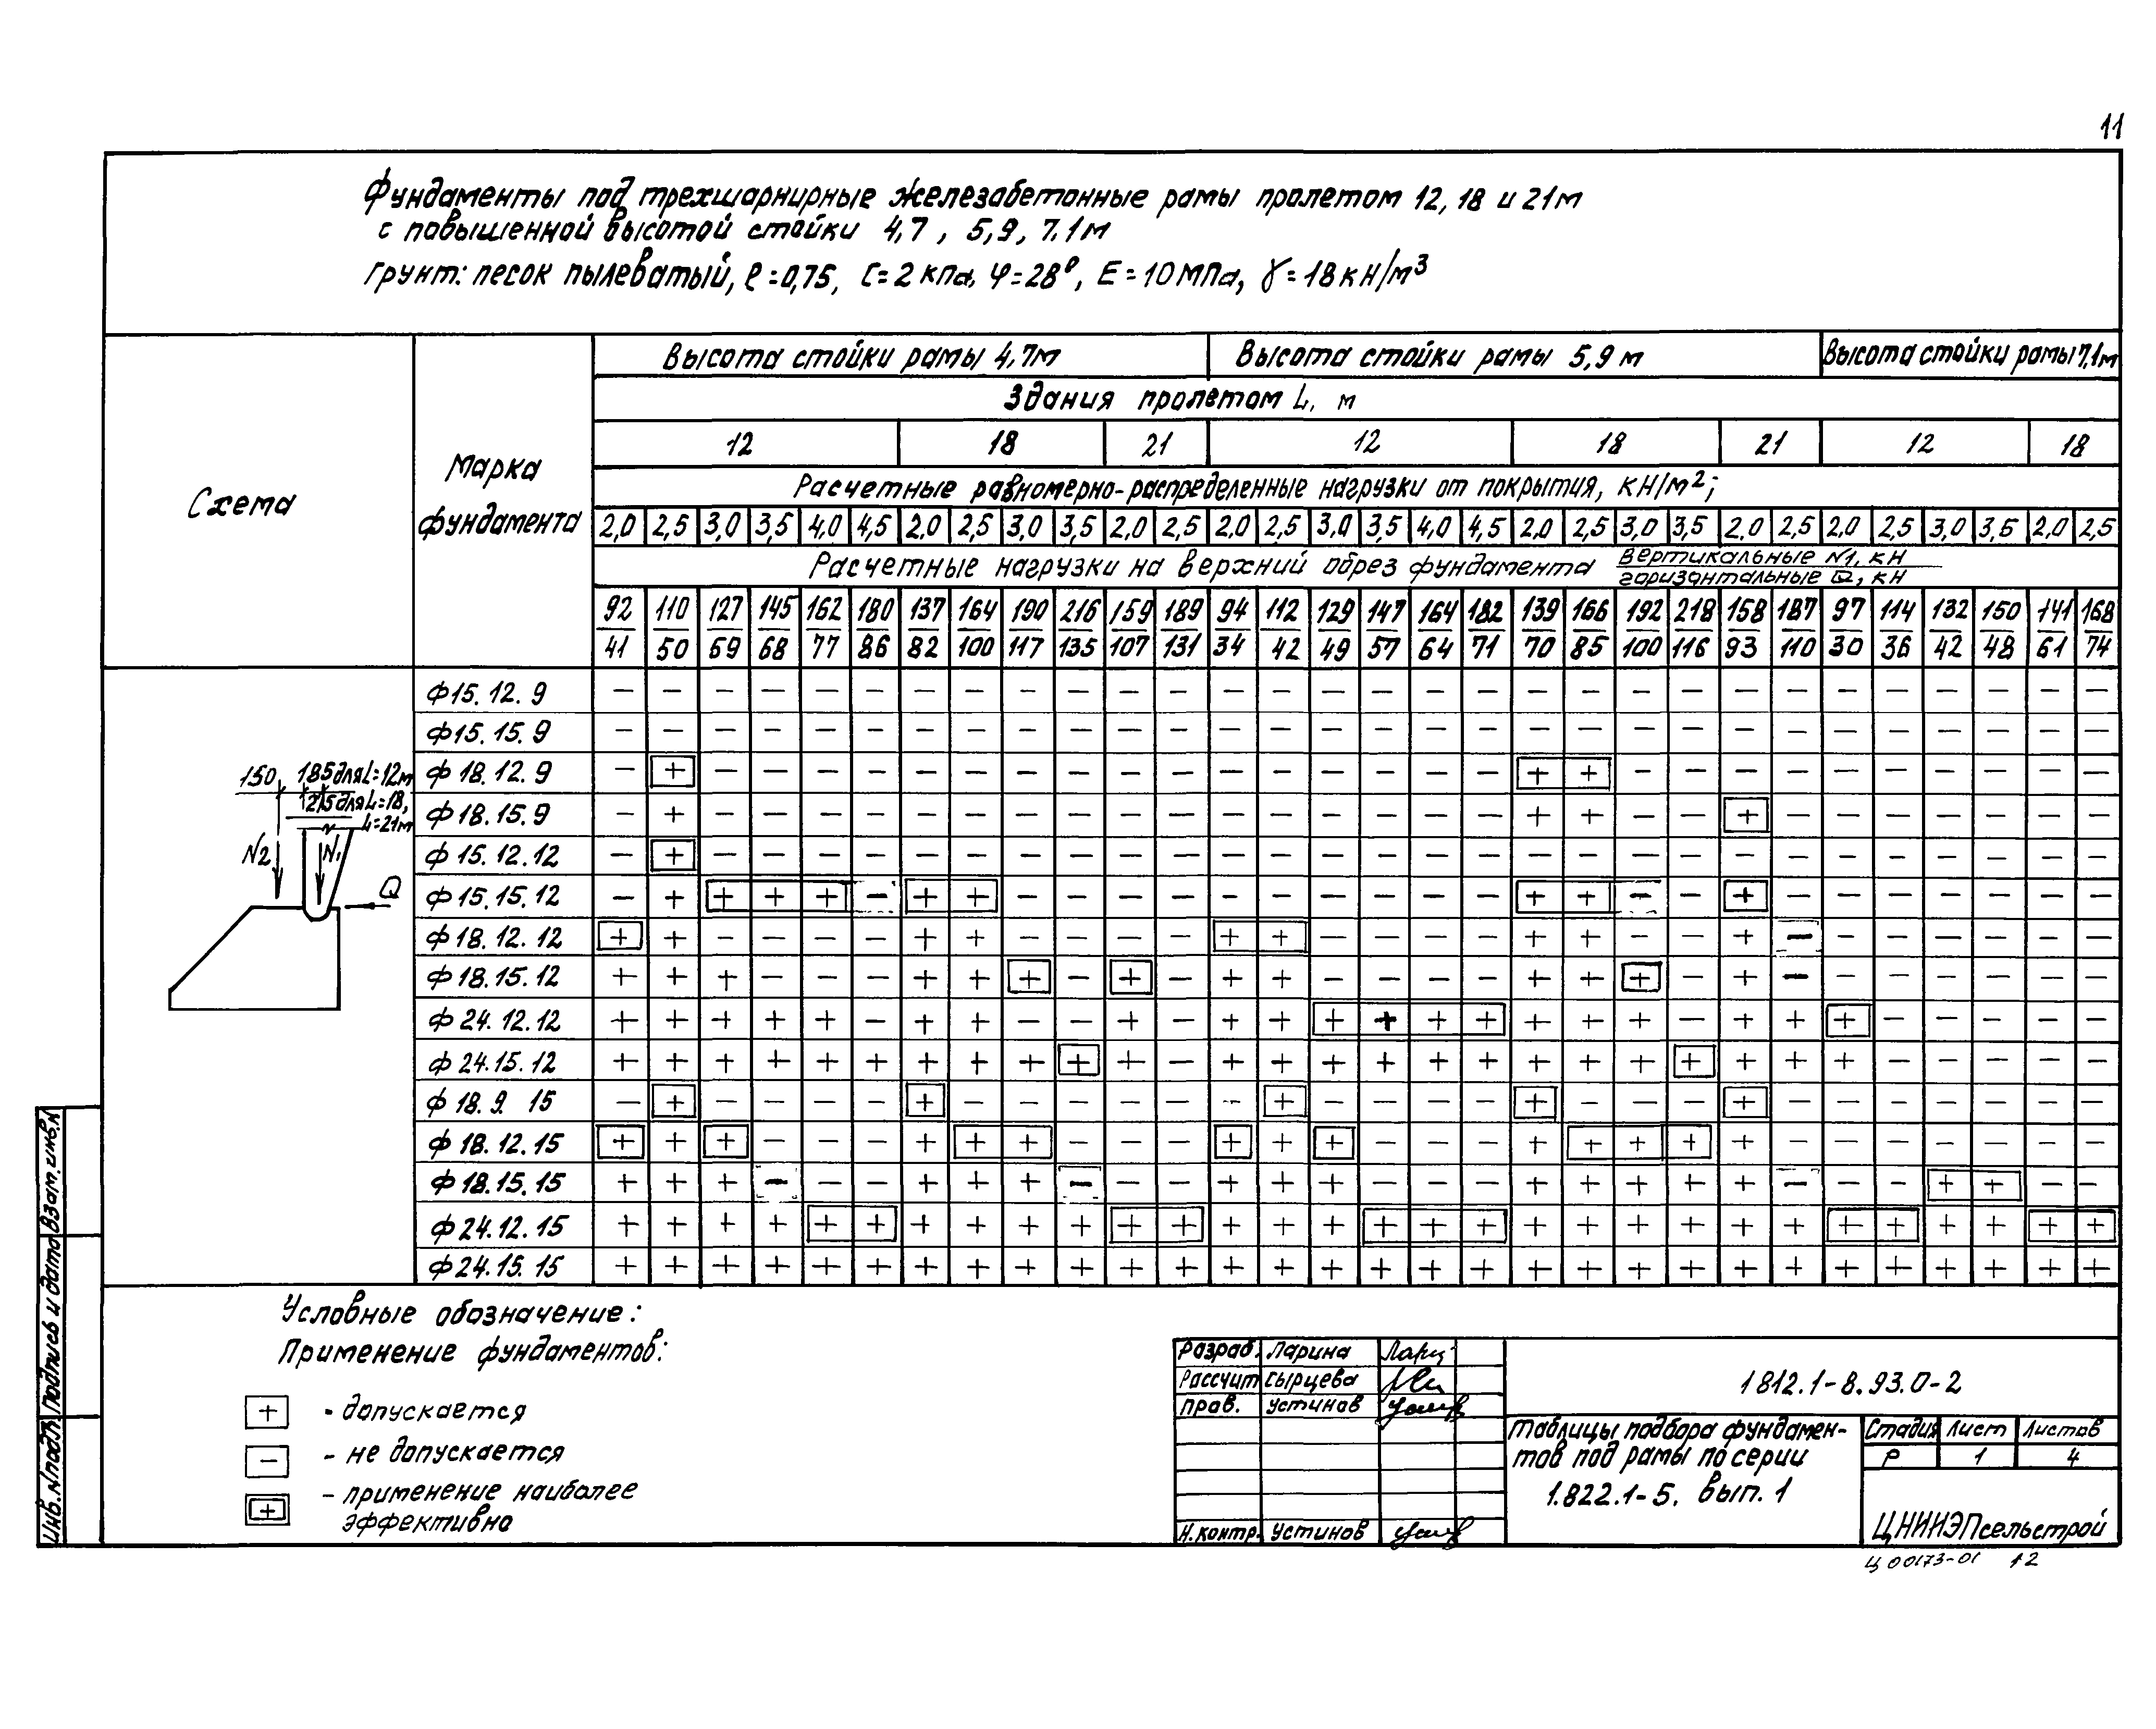 11
Фундаменты под трехшарнирные железобетонные рамы пролетом 12, 18 и 21м
с повышенной высотой стойки 4,7, 5,9, 7.1м
Грунт: песок пылеватый, e=0,75, C=2 кПа, φ=28°, E=10МПа, γ=18кН/м³
Схема
Марка фундамента
Высота стойки рамы 4,7м Высота стойки рамы 5,9 м Высота стойки рамы 7,1м
Здания пролетом L, м
12 18 21 12 18 21 12 18
Расчетные равномерно-распределенные нагрузки от покрытия, кН/м²;
2,0 2,5 3,0 3,5 4,0 4,5 2,0 2,5 3,0 3,5 2,0 2,5 2,0 2,5 3,0 3,5 4,0 4,5 2,0 2,5 3,0 3,5 2,0 2,5 2,0 2,5 3,0 3,5 2,0 2,5
Расчетные нагрузки на верхний обрез фундамента вертикальные N1, кН
горизонтальные Q, кН
92 110 127 145 162 180 137 164 190 216 159 189 94 112 129 147 164 182 139 166 192 218 158 187 97 114 132 150 141 168
41 50 59 68 77 86 82 100 117 135 107 131 34 42 49 57 64 71 70 85 100 116 93 110 30 36 42 48 61 74
Ф15.12.9 – – – – – – – – – – – – – – – – – – – – – – – – – – – – – –
Ф15.15.9 – – – – – – – – – – – – – – – – – – – – – – – – – – – – – –
Ф18.12.9 – + – – – – – – – – – – – – – – – – + + – – – – – – – – – –
Ф18.15.9 – + – – – – – – – – – – – – – – – – + + – – + – – – – – – –
Ф15.12.12 – + – – – – – – – – – – – – – – – – – – – – – – – – – – – –
Ф15.15.12 – + + + + – + + – – – – – – – – – – + + – – + – – – – – – –
Ф18.12.12 + + – – – – + + – – – – + + – – – – + + – – + – – – – – – –
Ф18.15.12 + + + – – – + + + – + – + + – – – – + + + – + – – – – – – –
Ф24.12.12 + + + + + – + + – – + – + + + + + + + + + – + + + – – – – –
Ф24.15.12 + + + + + + + + + + + – + + + + + + + + + + + + + – – – – –
Ф18.9 15 – + – – – – + – – – – – – + – – – – + – – – + – – – – – – –
Ф18.12.15 + + + – – – + + + – – – + + + – – – + + + + + – – – – – – –
Ф18.15.15 + + + – – – + + + – – – + + + – – – + + + + + – – – + + – –
Ф24.12.15 + + + + + + + + + + + + + + + + + + + + + + + + + + + + + +
Ф24.15.15 + + + + + + + + + + + + + + + + + + + + + + + + + + + + + +
150 185 для L=12м
215 для L=18,
L=21м
N2 N1
Q
Условные обозначение:
Применение фундаментов:
+ - допускается
– - не допускается
+ - применение наиболее
эффективно
Разраб. Ларина
Рассчит Сырцева
Пров. Устинов
Н.контр. Устинов
1812.1-8.93.0-2
Таблицы подбора фундамен-
тов под рамы по серии
1.822.1-5. вып. 1
Стадия Лист Листов
Р 1 4
ЦНИИЭПсельстрой
Ц00173-01 12
Инв.№подл. Подпись и дата Взам.инв.№